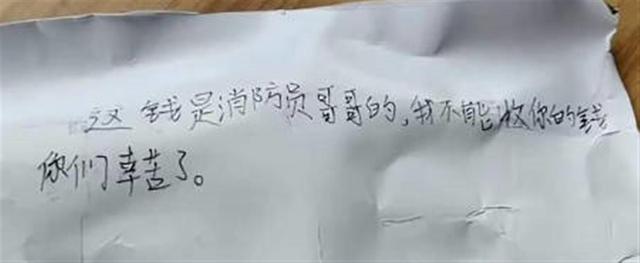 这钱是消防员哥哥的,我不能收你的钱
你们辛苦了。